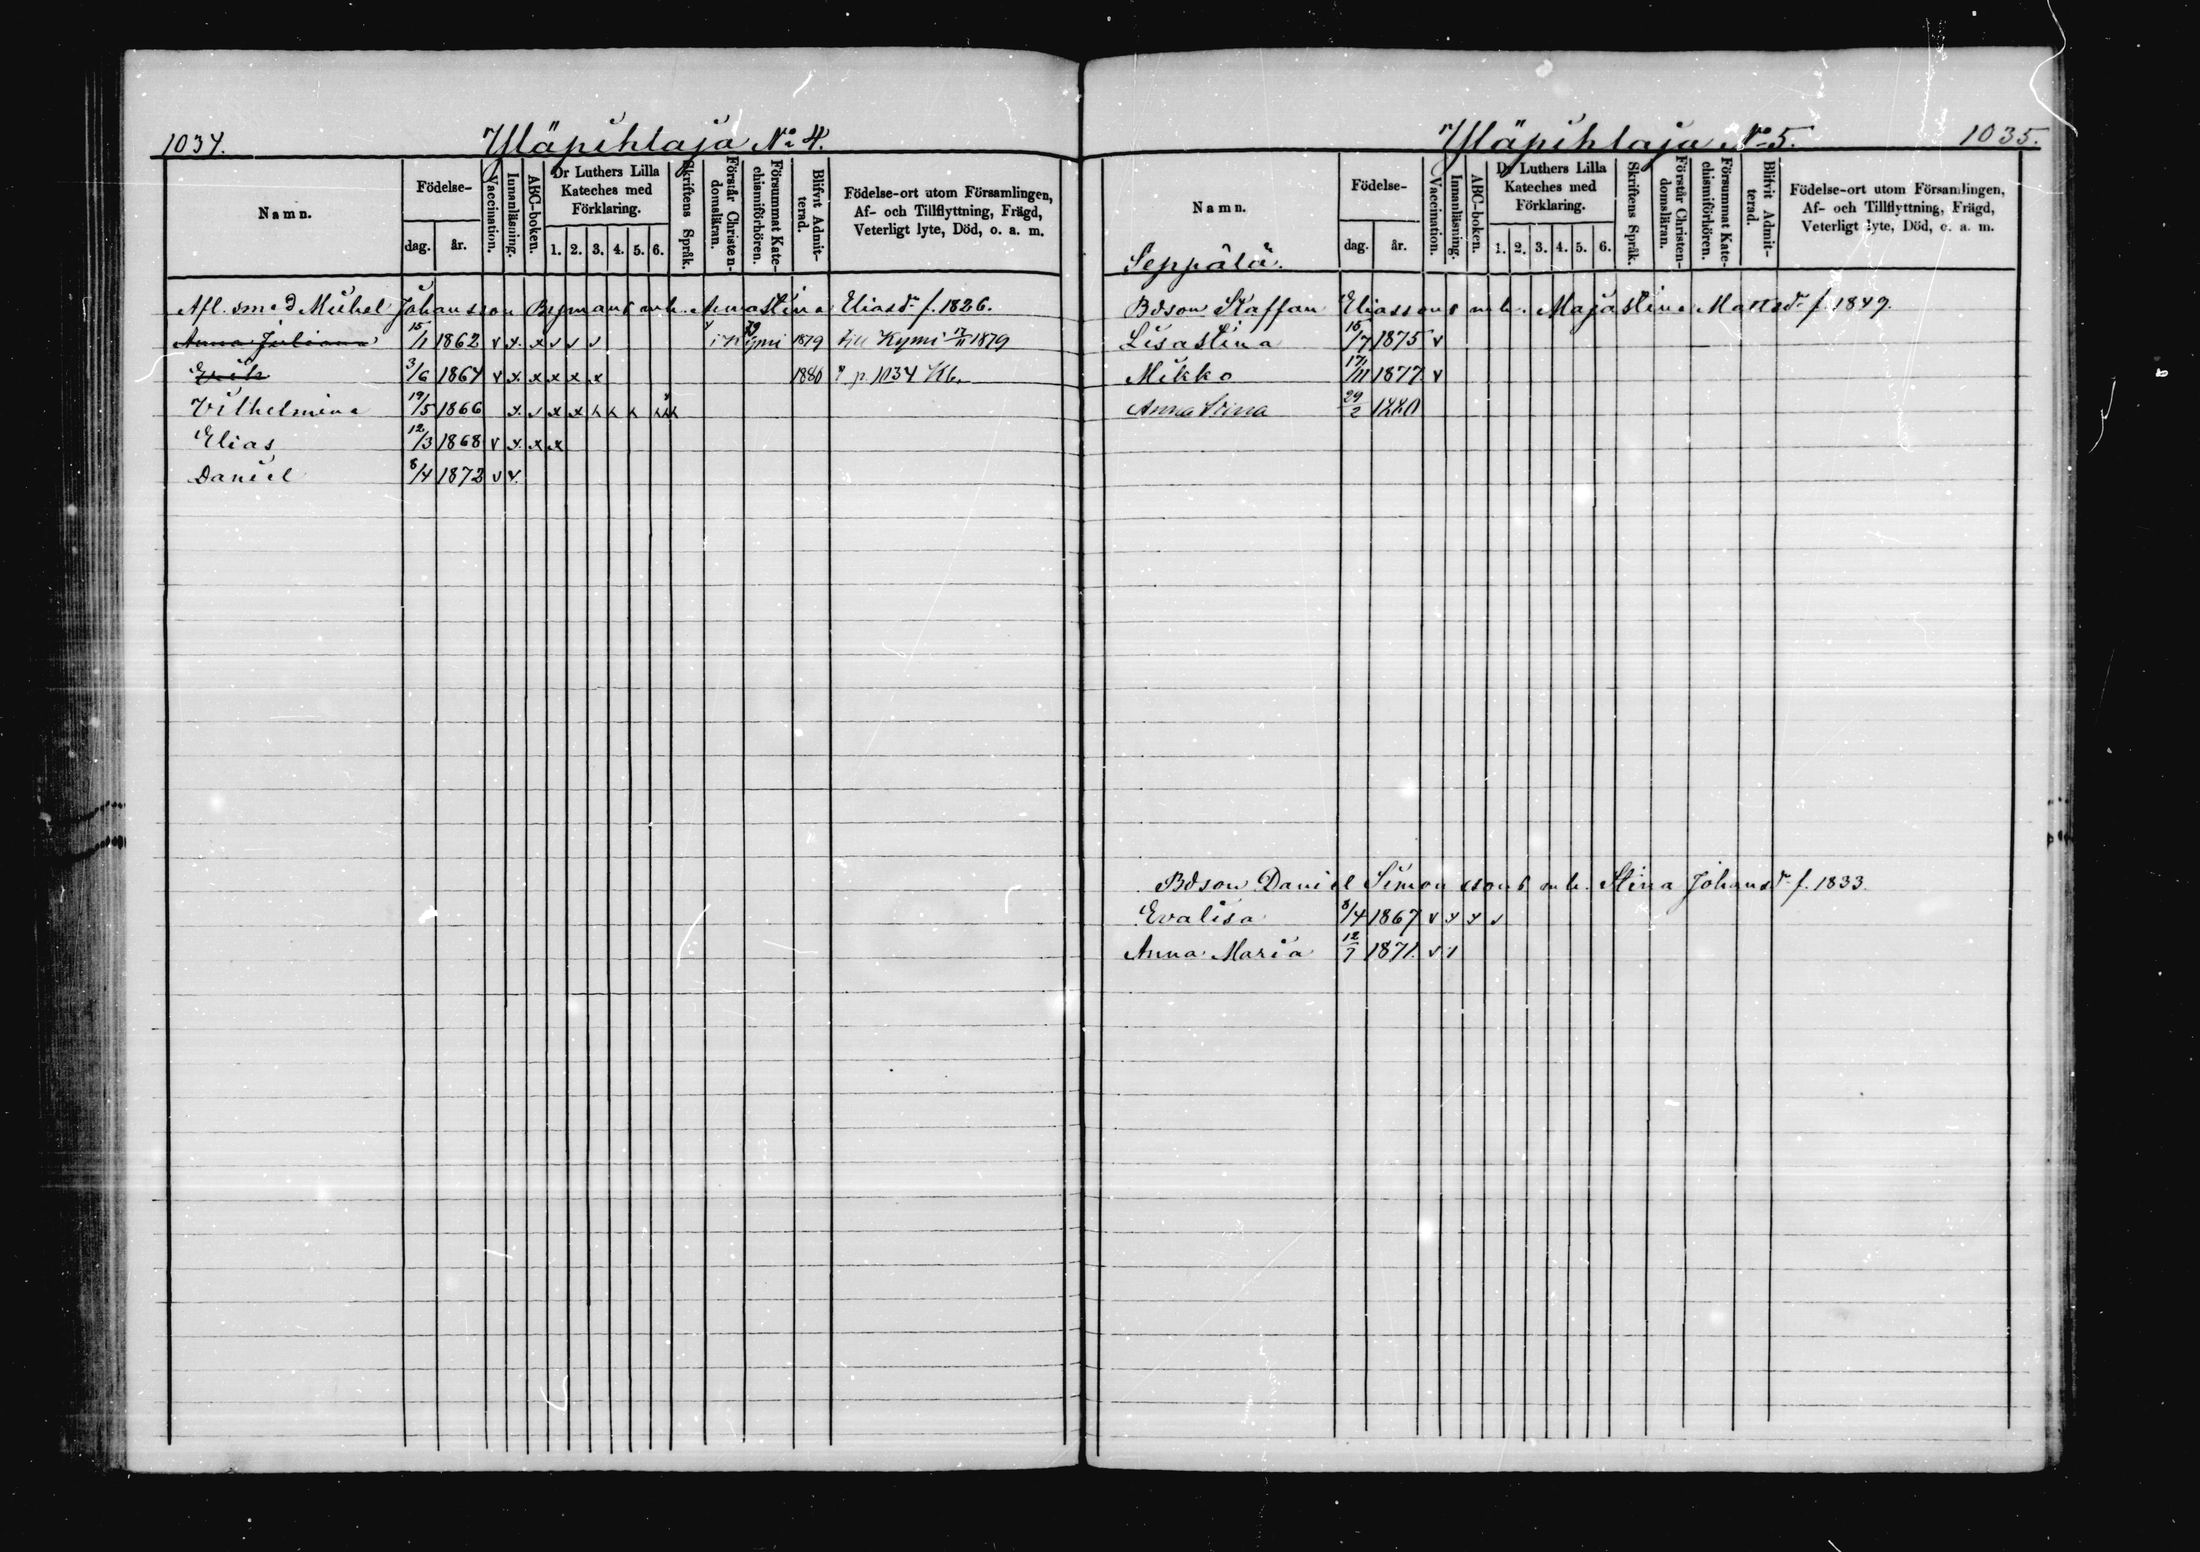 1034. Yläpihlaja No 4.
Namn. Födelse- dag. år. Vaccination. Innanläsning. ABC-boken. Dr Luthers Lilla Kateches med Förklaring. 1. 2. 3. 4. 5. 6. Skriftens Språk. Förstår Christendomsläran. Försummat Katechismiförhören. Blifvit Admitterad. Födelse-ort utom Församlingen, Af- och Tillflyttning, Frägd, Veterligt lyte, Död, o. a. m.
Afl. smed Mickel Johansson Rymans enk. Annastina Eliasdr f. 1826.
Anna Juliana 15/1 1862 v x. x v v v i Kymi 79 1879 till Kymi 1879
Erik 3/6 1864 v x. x x x x 1880 p. 1034 Kb.
Vilhelmina 19/5 1866 x. v x x
Elias 12/3 1868 v x. x x
Daniel 8/4 1872 v v.
Yläpihlaja No 5. 1035.
Namn. Födelse- dag. år. Vaccination. Innanläsning. ABC-boken. Dr Luthers Lilla Kateches med Förklaring. 1. 2. 3. 4. 5. 6. Skriftens Språk. Förstår Christendomsläran. Försummat Katechismiförhören. Blifvit Admitterad. Födelse-ort utom Församlingen, Af- och Tillflyttning, Frägd, Veterligt lyte, Död, o. a. m.
Seppälä.
Bdson Staffan Eliassons enk. Majastina Mattsdr f. 1849.
Lisastina 16/7 1875 v
Mikko 17/11 1877 v
Anna Stina 29/2 1880
Bdson Daniel Simonssons enk. Stina Johansdr f. 1833.
Evalisa 8/4 1867 v x x v
Anna Maria 12/7 1871. v 1